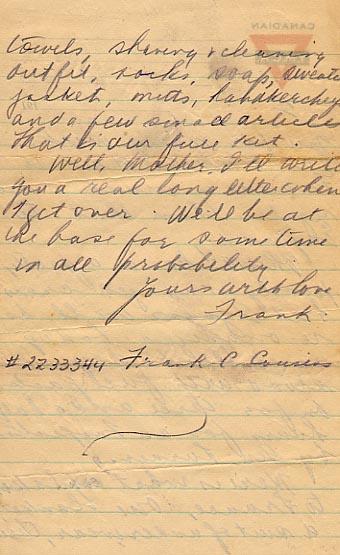 towels, shaving & cleaning
outfit, socks, soap, sweater
jacket, mitts, handkerchf
and a few small article
that is our full kit.
Well Mother, I'll write
you a real long letter when
I get over. We'll be at
the base for some time
in all probability
Yours with love
Frank.
#2233344 Frank C Cousins